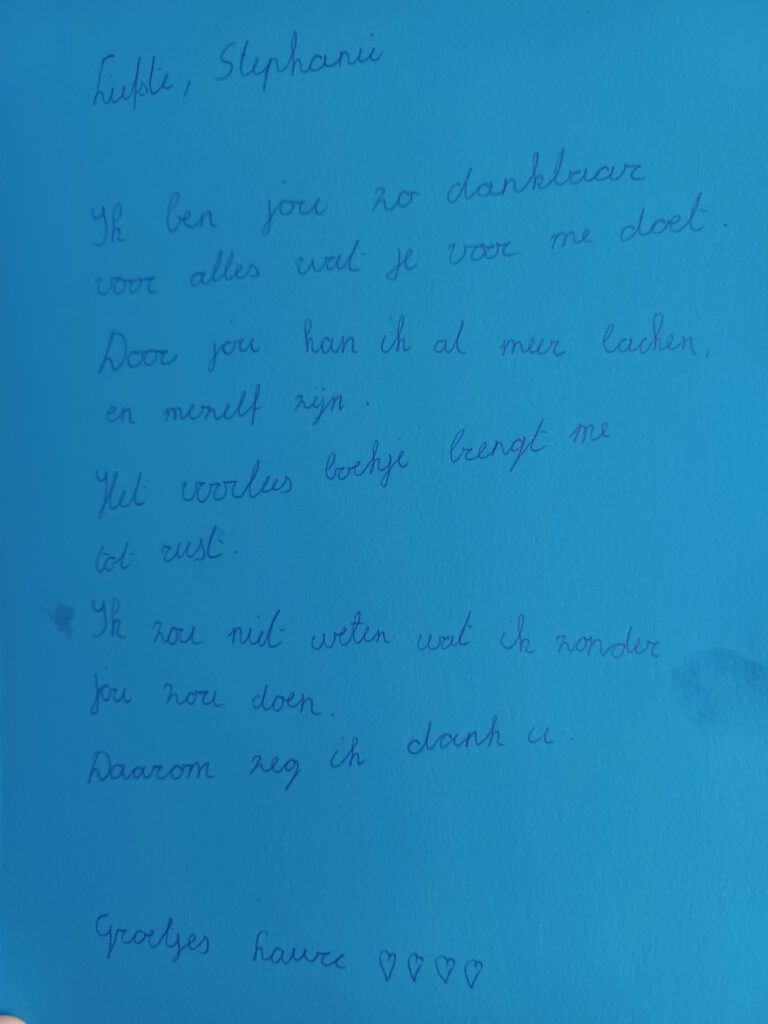 Liefste, Stephanie
Ik ben jou zo dankbaar
voor alles wat je voor me doet.
Door jou kan ik al meer lachen,
en mezelf zijn.
Het voorlees boekje brengt me
tot rust.
Ik zou niet weten wat ik zonder
jou zou doen.
Daarom zeg ik dank u.
Groetjes Laure ♡♡♡♡